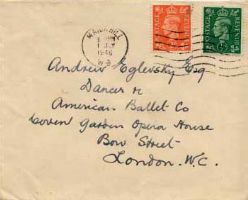 1946
POSTAGE
POSTAGE
Andrew Eglevsky Esq
Dancer
American Ballet Co
Coven Garden Opera House
Bow Street
London. W.C.